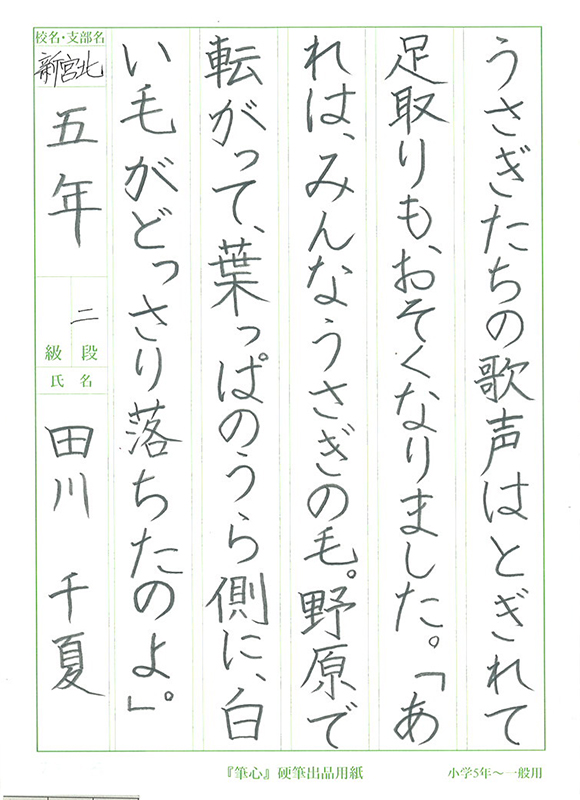 うさぎたちの歌声はとぎれて
足取りも、おそくなりました。「あ
れは、みんなうさぎの毛。野原で
転がって、葉っぱのうら側に、白
い毛がどっさり落ちたのよ。」
校名・支部名
新宮北
五年
二
段
級
氏名
田川 千夏
『筆心』硬筆出品用紙
小学5年～一般用